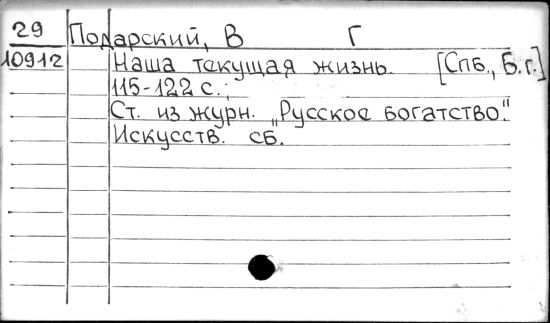 29 Подарский, В Г
10912 Наша текущая жизнь. [Спб., Б.г.]
115-122 с.;
Ст. из журн. „Русское богатство".
Искусств. сб.